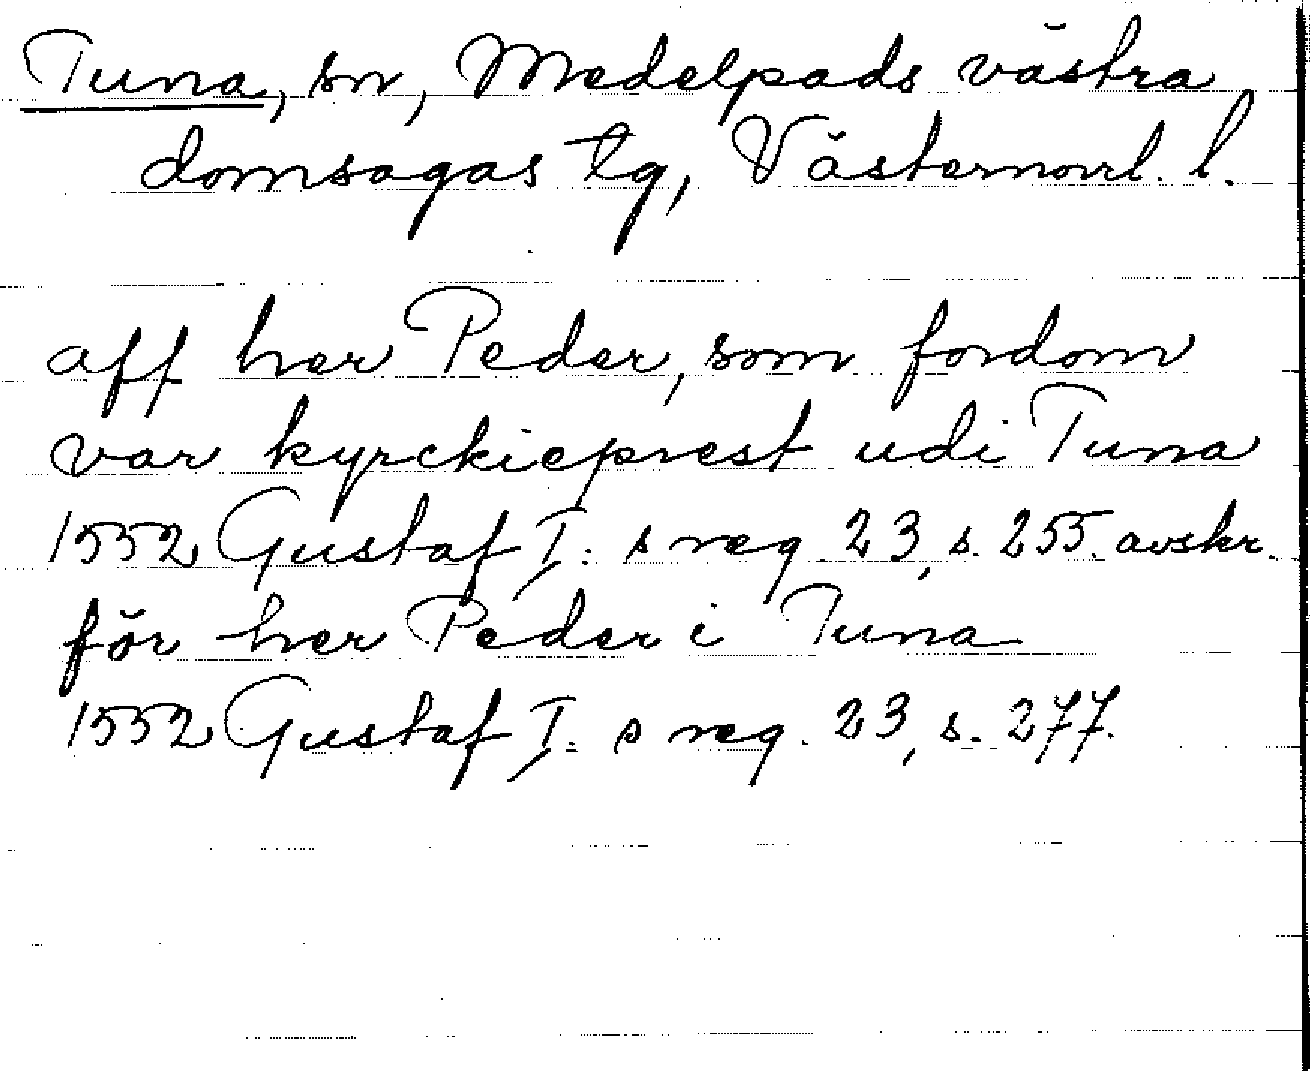 Tuna, sn, Medelpads västra
domsagas tg, Västernorrl. l.
aff her Peder, som fordom
var kyrckieprest udi Tuna
1552 Gustaf I. s reg. 23, s. 255. avskr.
för her Peder i Tuna
1552 Gustaf I. s reg. 23, s. 277.